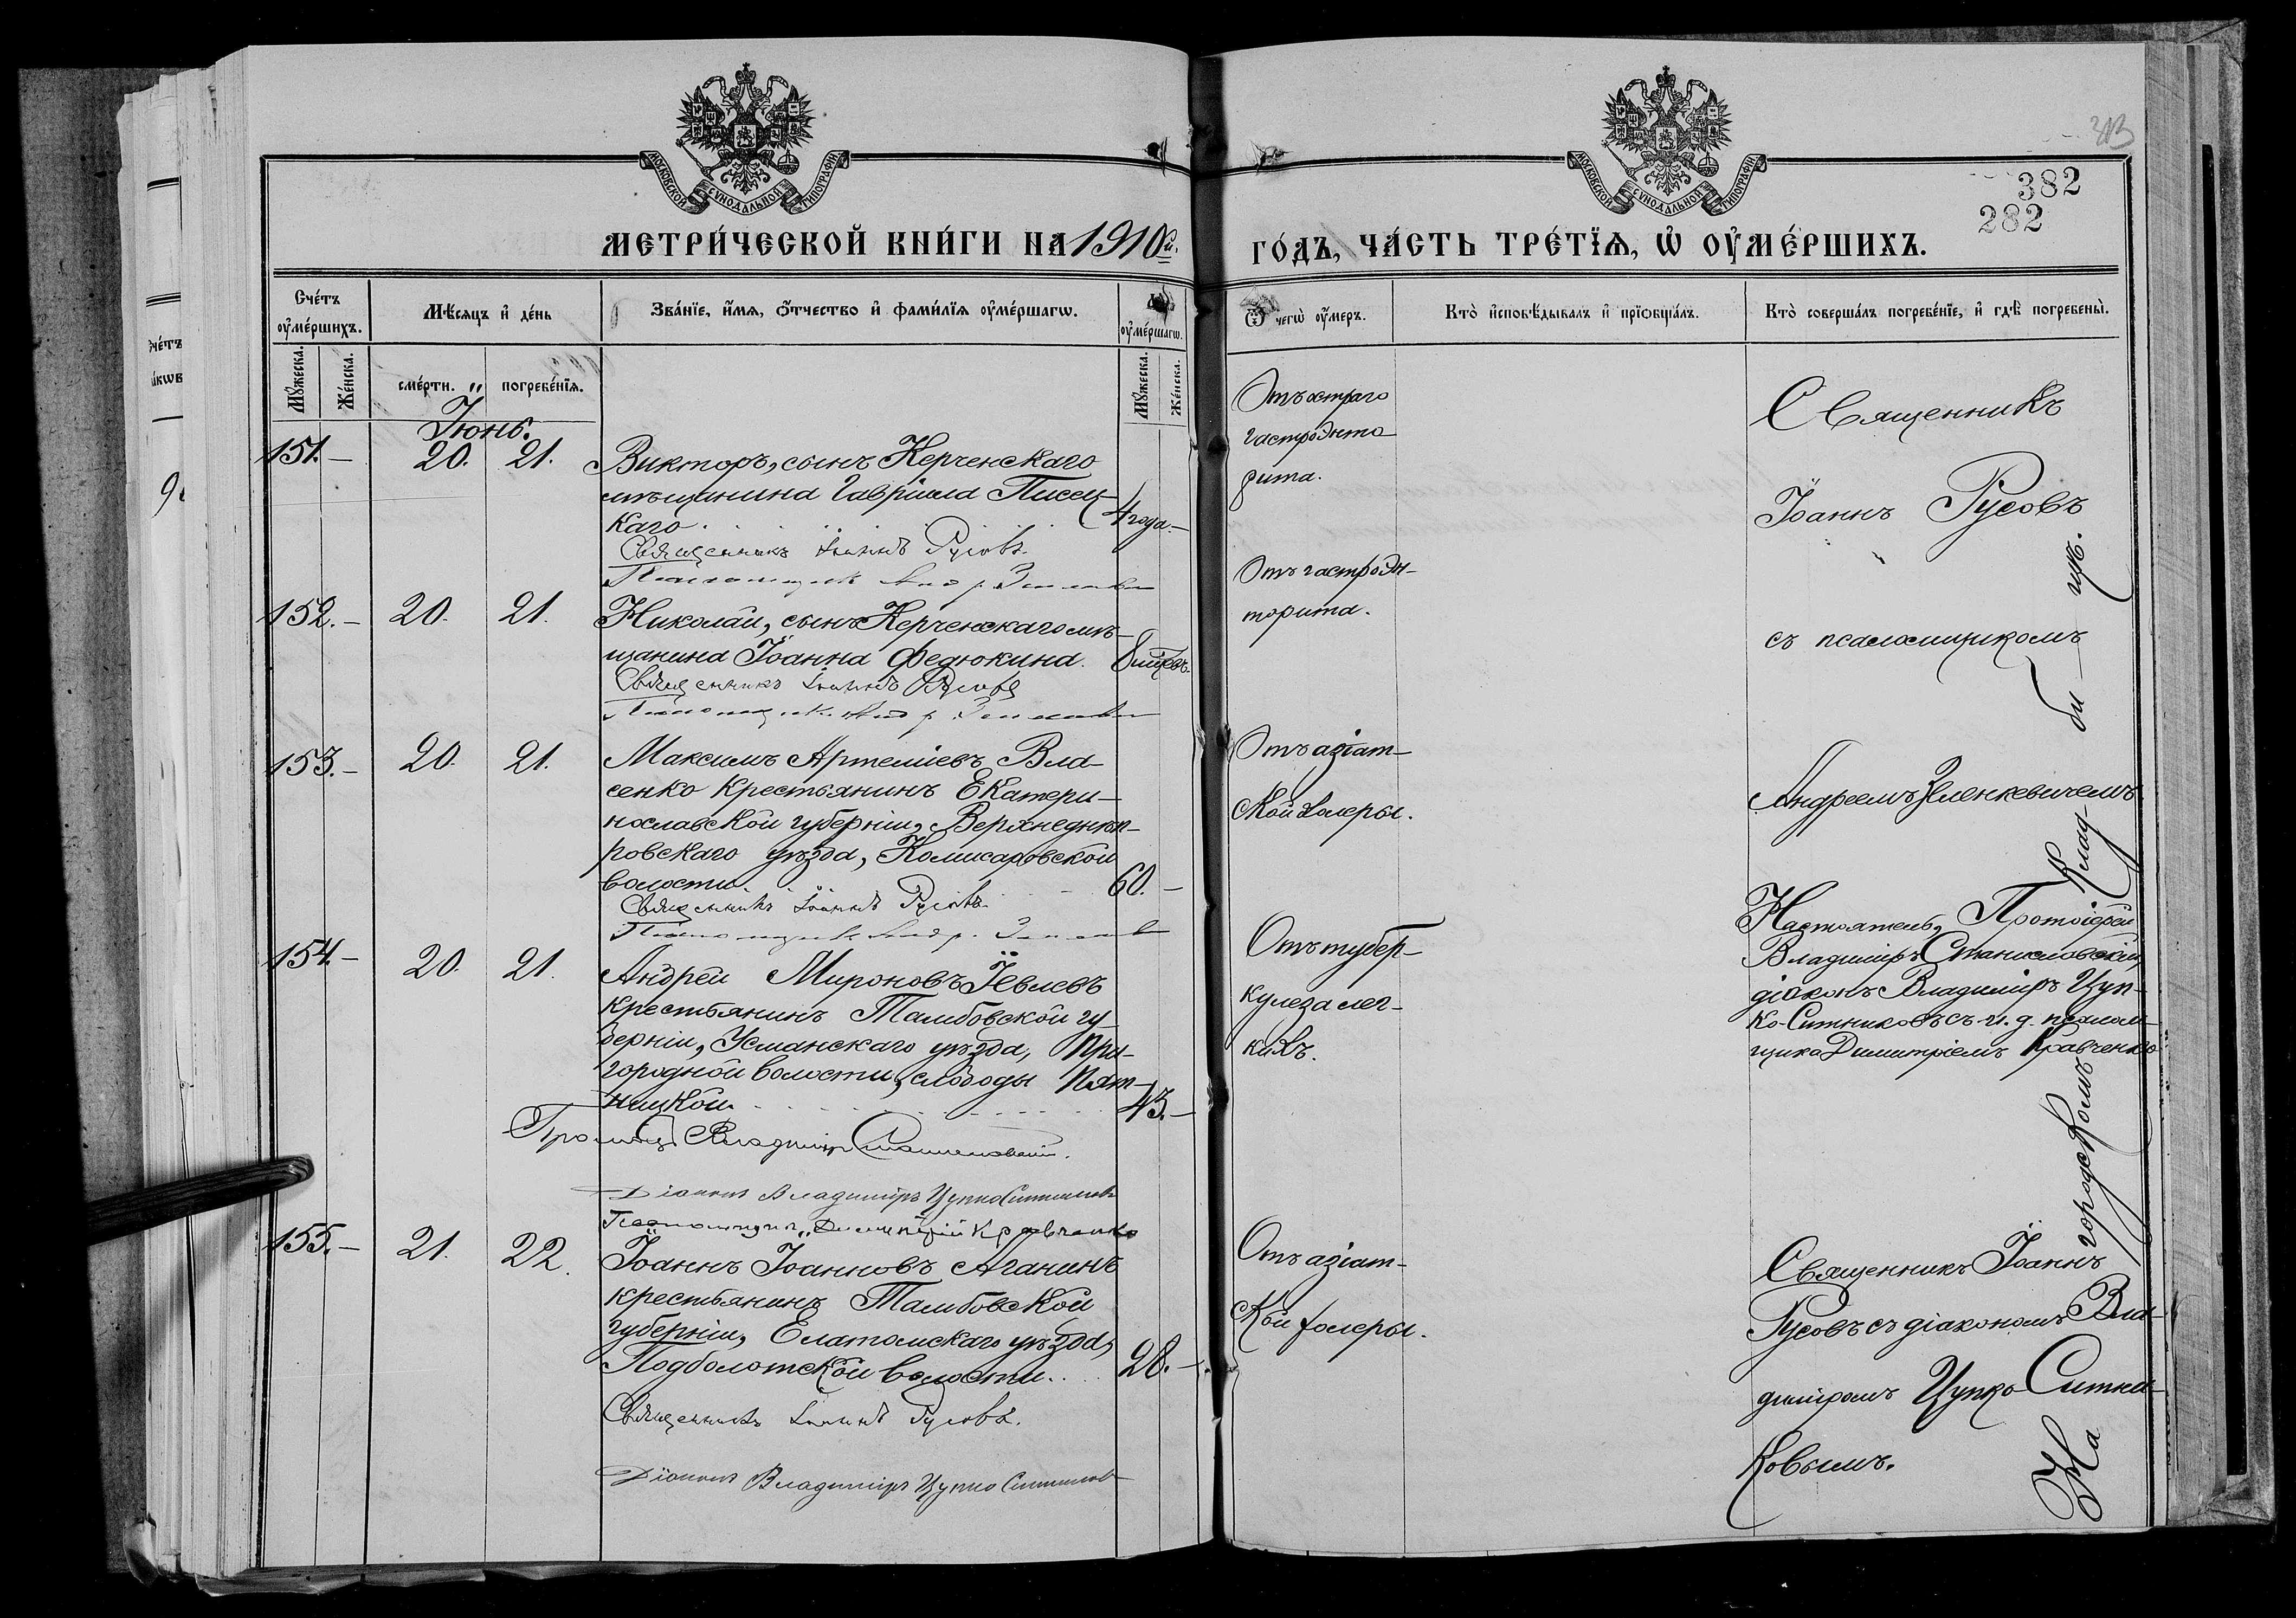 313
382
282
МОСКОВСКОЙ СѴНОДАЛЬНОЙ ТИПОГРАФІИ
МОСКОВСКОЙ СѴНОДАЛЬНОЙ ТИПОГРАФІИ
МЕТРИ́ЧЕСКОЙ КНИ́ГИ НА 1910й.
ГО́ДЪ, ЧА́СТЬ ТРЕ́ТЇѦ, Ѡ҆ ОУ҆МЕ́РШИХЪ.
Сче́тъ оу҆ме́ршихъ.
Мѣ́сяцъ и҆ де́нь
Зва́нїе, и҆́мѧ, ѻ҆́тчество и҆ фами́лїѧ оу҆ме́ршагѡ.
оу҆ме́ршагѡ.
Ѿ чегѡ̀ оу҆́меръ.
Кто̀ и҆сповѣ́дывалъ и҆ прїѡбща́лъ.
Кто̀ соверша́лъ погребе́нїе, и҆ гдѣ̀ погребены̀.
Мꙋ́жеска.
Же́нска.
сме́рти.
погребе́нїѧ.
Мꙋ́жеска.
Же́нска.
Іюнь.
151. – 20. 21. Викторъ, сынъ Керченскаго
мѣщанина Гавріила Писец-
каго 4 года –
Священникъ Іоаннъ Русовъ.
Отъ остраго
гастроэнте
рита.
Священникъ
Іоаннъ Русовъ
152. – 20. 21. Николай, сынъ Керченскаго мѣ-
щанина Іоанна Федюкина. 8 мѣс.
Священникъ Іоаннъ Русовъ
Отъ гастроэн-
терита.
съ псаломщикомъ
153. – 20. 21. Максимъ Артеміевъ Вла-
сенко крестьянинъ Екатери-
нославской губерніи, Верхнеднѣп-
ровскаго уѣзда, Комисаровской
волости 60. –
Священникъ Іоаннъ Русовъ
Отъ азіат-
ской холеры.
Андреемъ Зеленкевичемъ
154. – 20. 21. Андрей Мироновъ Іевлевъ
крестьянинъ Тамбовской гу-
берніи, Усманскаго уѣзда, При-
городной волости, слободы Пят-
ницкой. 43. –
Протоіерей Владиміръ Станиславскій.
Діаконъ Владиміръ Цупко Ситников
Псаломщикъ Димитрій Кравченко
Отъ тубер-
кулеза лег-
кихъ.
Настоятель, Протоіерей
Владиміръ Станиславскій,
діаконъ Владиміръ Цуп-
ко-Ситниковъ съ и. д. псалом-
щика Димитріемъ Кравченко
155. – 21. 22. Іоаннъ Іоанновъ Аганинъ
крестьянинъ Тамбовской
губерніи, Елатомскаго уѣзда,
Подболотской волости. 28. –
Священникъ Іоаннъ Русовъ.
Діаконъ Владиміръ Цупко Ситников
Отъ азіат-
ской холеры.
Священникъ Іоаннъ
Русовъ съ діакономъ Вла-
диміромъ Цупко-Ситни-
ковымъ.
На городскомъ клад-
би – щѣ.